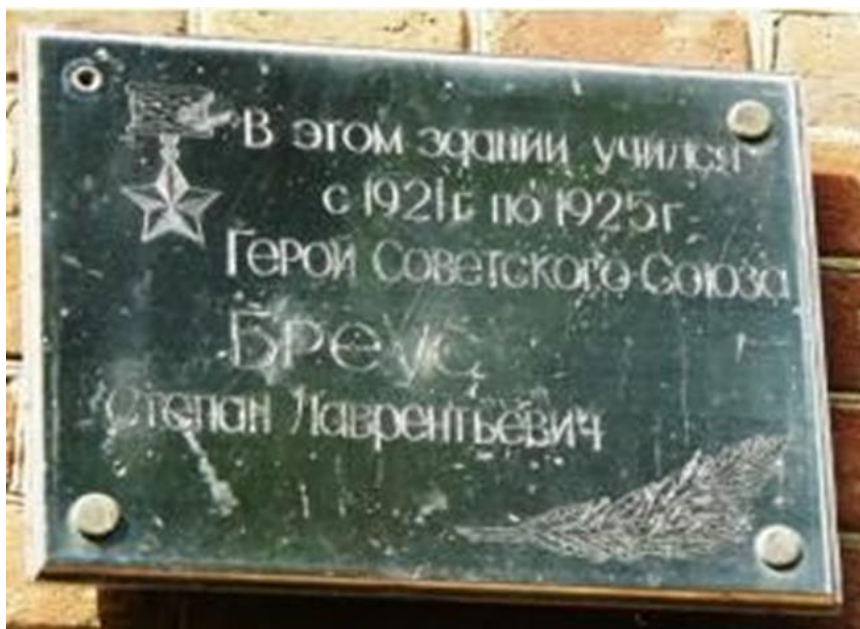 В этом здании учился
с 1921г. по 1925г.
Герой Советского Союза
Бреус
Степан Лаврентьевич